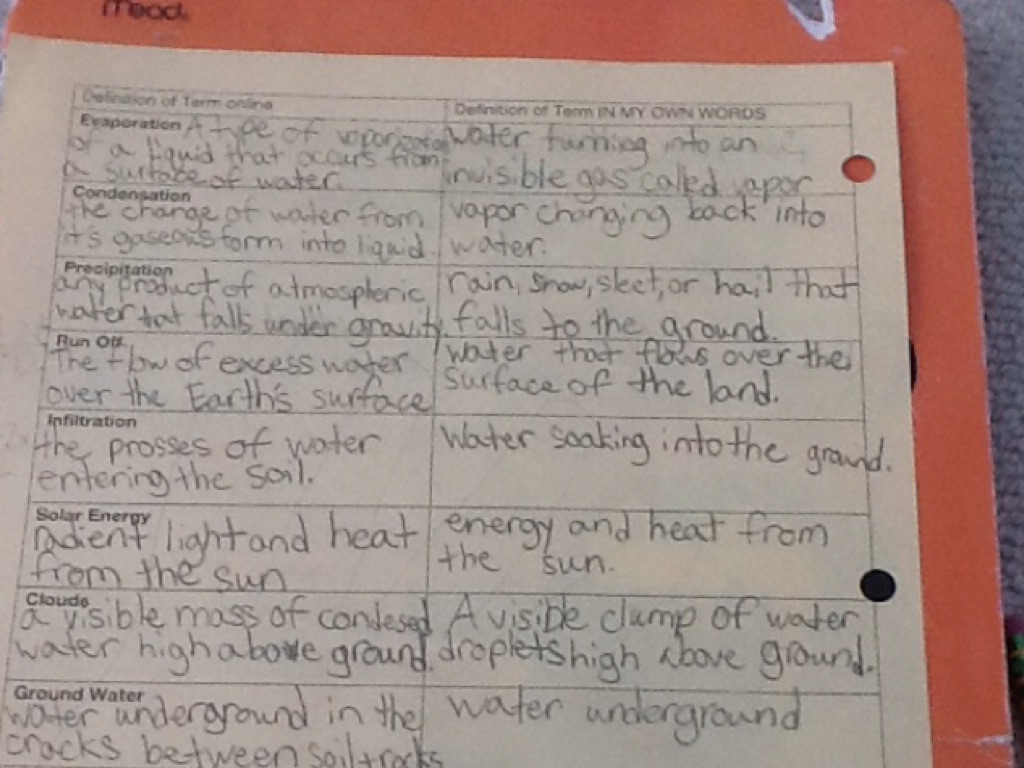 Mead
Definition of Term online
Definition of Term IN MY OWN WORDS
Evaporation A type of
of a liquid that occurs from
a surface of water.
water turning into an
invisible gas called vapor
Condensation
the change of water from
it's gaseous form into liquid.
vapor changing back into
water.
Precipitation
any product of atmospheric
water tat falls under gravity.
rain, snow, sleet, or hail that
falls to the ground.
Run Off
The flow of excess water
over the Earth's surface
water that flows over the
surface of the land.
Infiltration
the prosses of water
entering the soil.
Water soaking into the ground.
Solar Energy
radient light and heat
from the sun
energy and heat from
the sun.
Clouds
a visible mass of condesed
water high above ground.
A visible clump of water
droplets high above ground.
Ground Water
water underground in the
cracks between soil+rocks
water underground